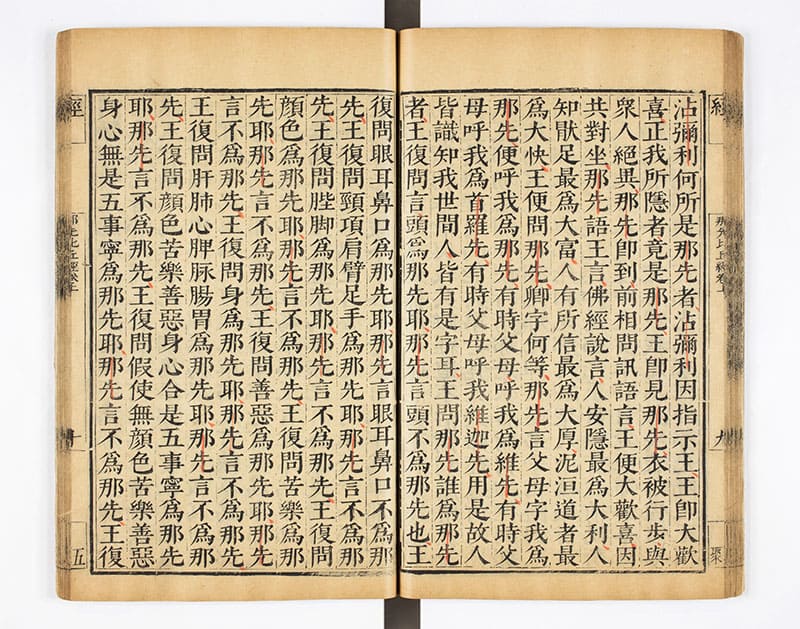 經
那先比丘經卷上
九
沾彌利何所是那先者沾彌利因指示王王即大歡
喜正我所隱者竟是那先王即見那先衣被行步與
衆人絕異那先即到前相問訊語言王便大歡喜因
共對坐那先語王言佛經說言人安隱最爲大利人
知猒足最爲大富人有所信最爲大厚泥洹道者最
爲大快王便問那先卿字何等那先言父母字我爲
那先便呼我爲那先有時父母呼我爲維先有時父
母呼我爲首羅先有時父母呼我維迦先用是故人
皆識知我世間人皆有是字耳王問那先誰爲那先
者王復問言頭爲那先耶那先言頭不爲那先也王
復問眼耳鼻口爲那先耶那先言眼耳鼻口不爲那
先王復問頸項肩臂足手爲那先耶那先言不爲那
先王復問脚爲那先耶那先言不爲那先王復問
顏色爲那先耶那先言不爲那先王復問苦樂爲那
先耶那先言不爲那先王復問善惡爲那先耶那先
言不爲那先王復問身爲那先耶那先言不爲那先
王復問肝肺心脾脉腸胃爲那先耶那先言不爲那
先王復問顏色苦樂善惡身心合是五事寧爲那先
耶那先言不爲那先王復問假使無顏色苦樂善惡
身心無是五事寧爲那先耶那先言不爲那先王復
經
那先比丘經卷上
五